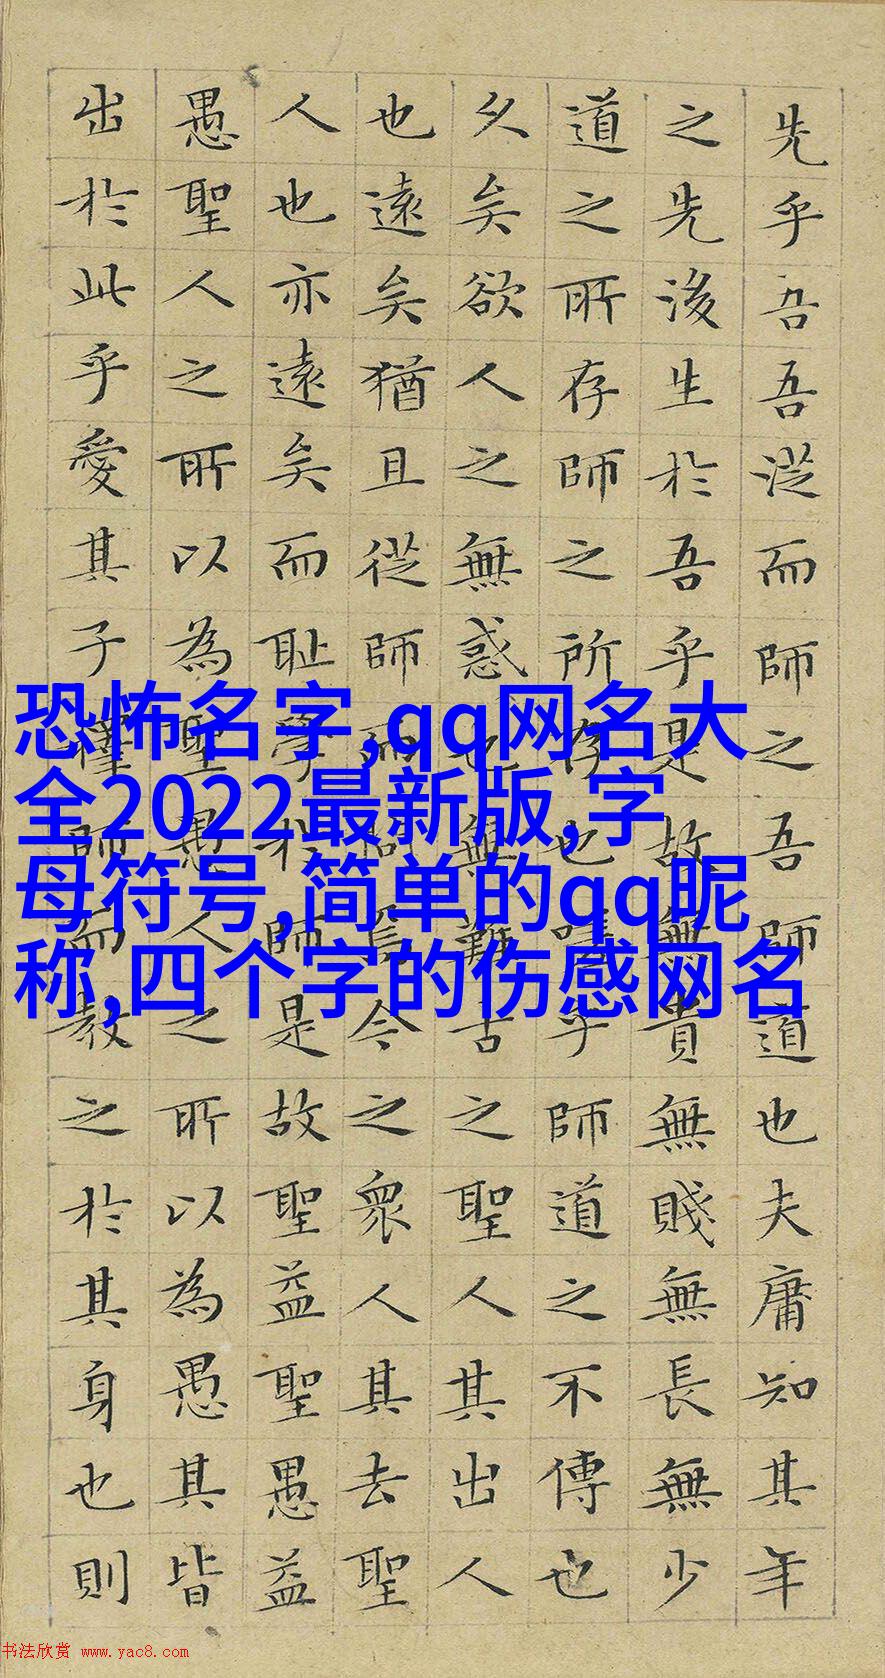 先乎吾吾從而師之吾師道也夫庸知其年
之先後生於吾乎是故無貴無賤無長無少
道之所存師之所存也嗟乎師道之不傳也
久矣欲人之無惑也無難古之聖人其出人
也遠矣猶且從師而問焉今之衆人其去聖
人也亦遠矣而耻學於師是故聖益聖愚益
愚聖人之所以為聖愚人之所以為愚其皆
出於此乎愛其子擇師而教之於其身也則
恐怖名字,qq网名大
全2022最新版,字
母符号,简单的qq昵
称,四个字的伤感网名
书法欣赏 www.yac8.com